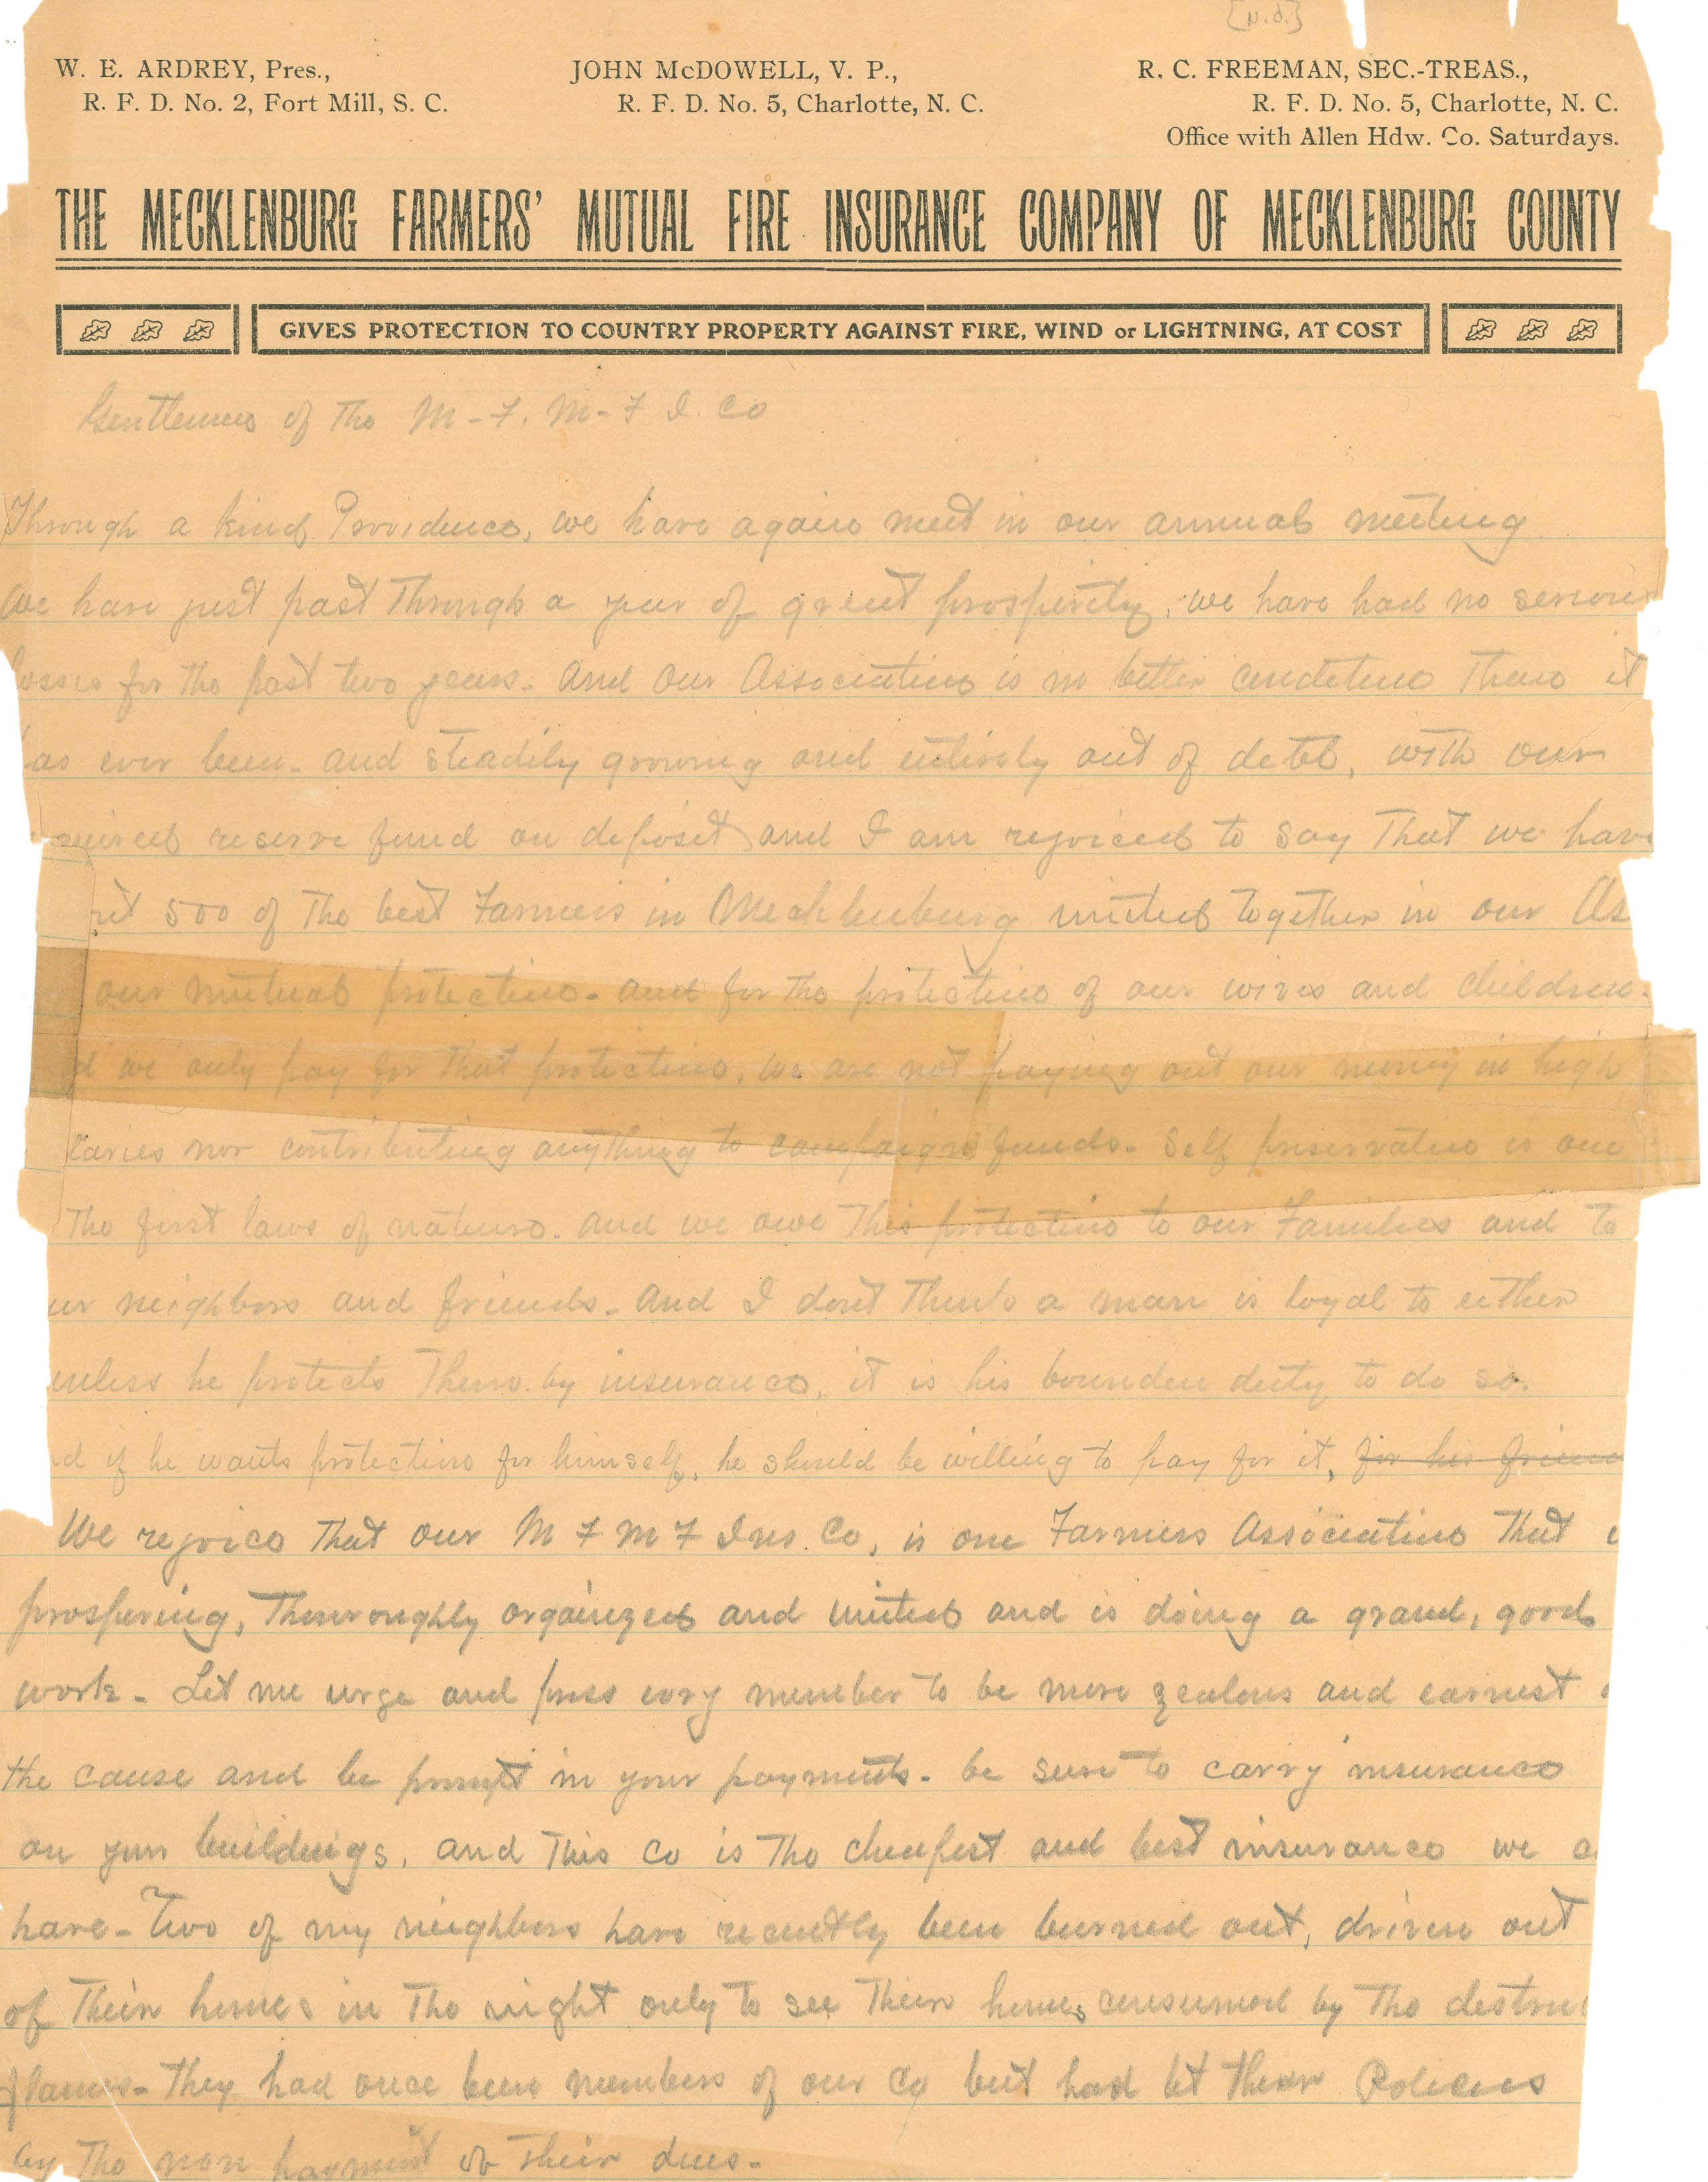 [N.d.]
W. E. ARDREY, Pres., JOHN McDOWELL, V. P., R. C. FREEMAN, SEC.-TREAS.,
R. F. D. No. 2, Fort Mill, S. C. R. F. D. No. 5, Charlotte, N. C. R. F. D. No. 5, Charlotte, N. C.
Office with Allen Hdw. Co. Saturdays.
THE MECKLENBURG FARMERS' MUTUAL FIRE INSURANCE COMPANY OF MECKLENBURG COUNTY
GIVES PROTECTION TO COUNTRY PROPERTY AGAINST FIRE, WIND or LIGHTNING, AT COST
Gentlemen of the M-F. M-F I. Co
Through a kind Providence, we have again meet in our annual meeting
We have just past through a year of great prosperity, we have had no serious
losses for the past two years. And our Association is in better condition than it
has ever been. and steadily growing and entirely out of debt, with our
reserve fund on deposit and I am rejoiced to say that we have
500 of the best Farmers in Mecklenburg united together in our As
our mutual protection. and for the protection of our wives and children.
d we only pay for that protection, we are not paying out our money in high
laries nor contributing anything to campaign funds. Self preservation is one
the first laws of nature. and we owe this protection to our Families and to
ur neighbors and friends. And I dont think a man is loyal to either
unless he protects them by insurance, it is his bounden duty to do so.
nd if he wants protection for himself, he should be willing to pay for it, for his friend
We rejoice that our M F M F Ins. Co, is one Farmers Association that
prospering, thouroughly organized and united and is doing a grand, good
work. Let me urge and press every member to be more zealous and earnest
the cause and be prompt in your payments. be sure to carry insurance
on your buildings, and this Co is the cheapest and best insurance we c
have - Two of my neighbors have recently been burned out, driven out
of their homes in the night only to see their homes consumed by the destruc
flames. They had once been members of our Co but had let their Policies
by the non payment of their dues.